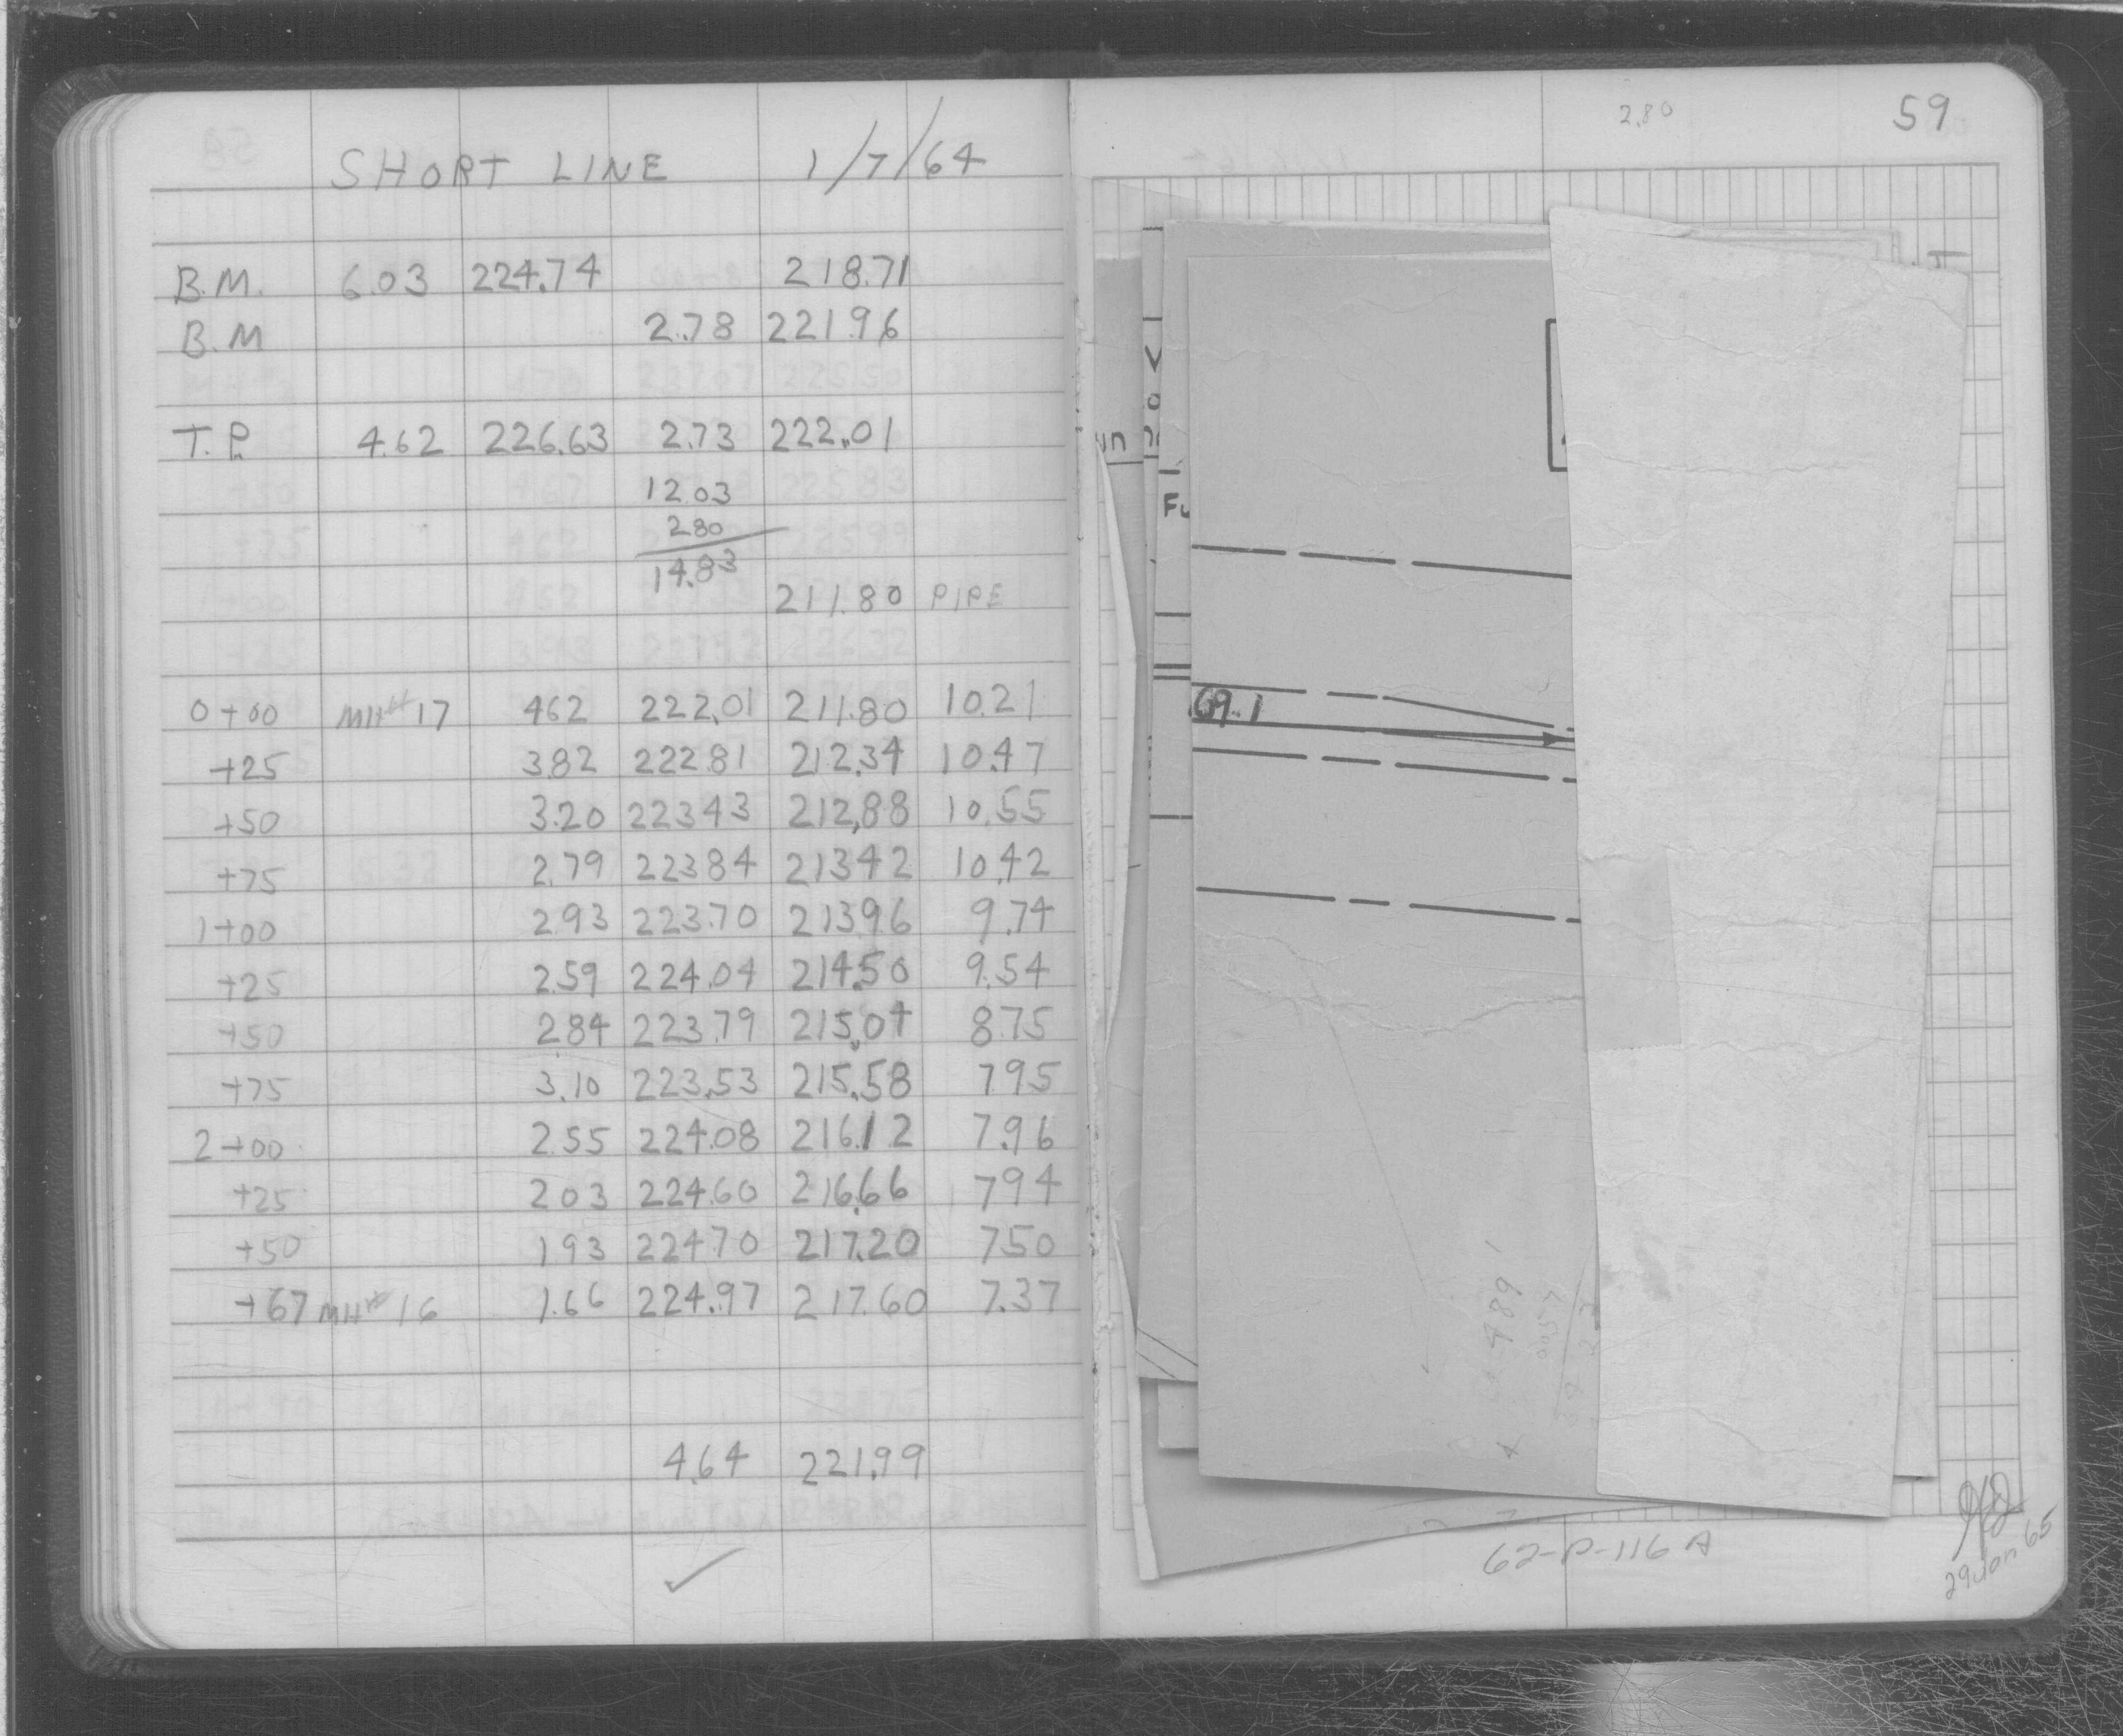 SHORT LINE 1/7/64
B.M. 6.03 224.74 218.71
B.M 2.78 221.96
T.P. 4.62 226.63 2.73 222.01
12.03
2.80
14.83
211.80 PIPE
0+00 MH#17 4.62 222.01 211.80 10.21
+25 3.82 222.81 212.34 10.47
+50 3.20 223.43 212.88 10.55
+75 2.79 223.84 213.42 10.42
1+00 2.93 223.70 213.96 9.74
+25 2.59 224.04 214.50 9.54
+50 2.84 223.79 215.04 8.75
+75 3.10 223.53 215.58 7.95
2+00 2.55 224.08 216.12 7.96
+25 2.03 224.60 216.66 7.94
+50 1.93 224.70 217.20 7.50
+67 MH#16 1.66 224.97 217.60 7.37
4.64 221.99
2.80
59
69.1
62-P-116 A
29 Jan 65